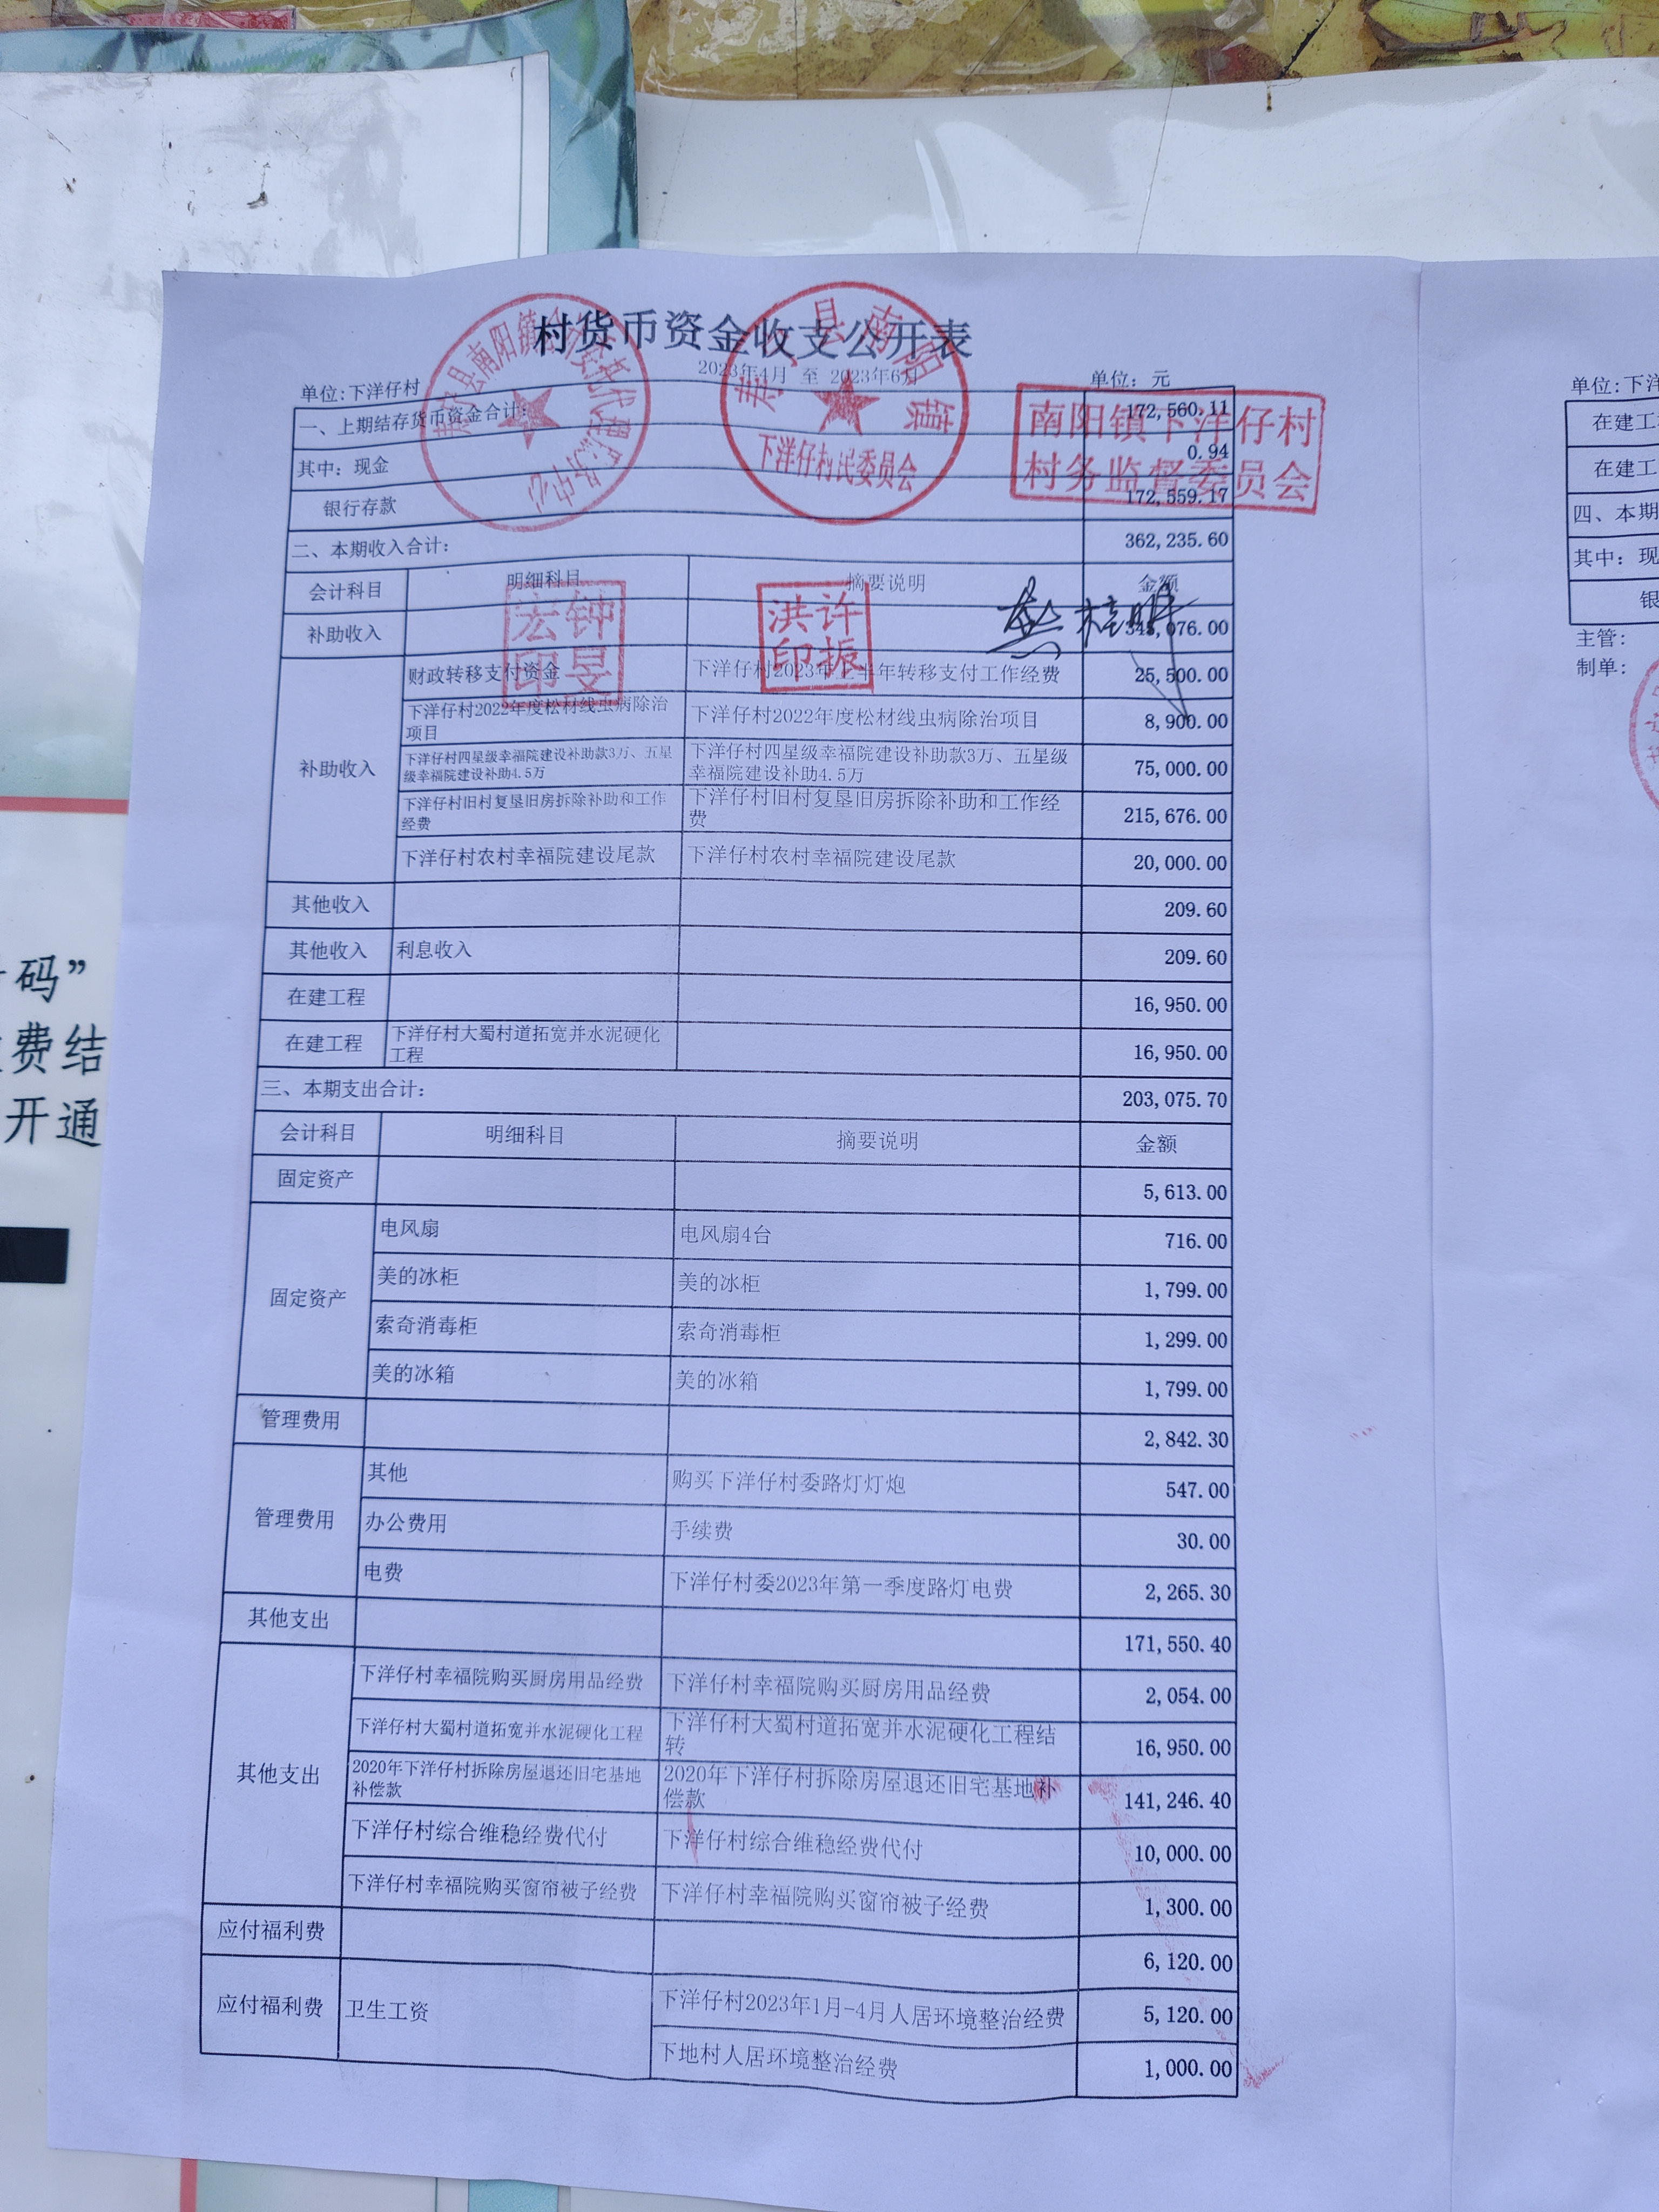 村货币资金收支公开表
2023年4月 至 2023年6月
单位:下洋仔村 单位: 元
一、上期结存货币资金合计: 172,560.11
其中: 现金 0.94
银行存款 172,559.17
二、本期收入合计: 362,235.60
会计科目 明细科目 摘要说明 金额
补助收入 076.00
补助收入
财政转移支付资金 下洋仔村2023年上半年转移支付工作经费 25,500.00
下洋仔村2022年度松材线虫病除治
项目 下洋仔村2022年度松材线虫病除治项目 8,900.00
下洋仔村四星级幸福院建设补助款3万、五星
级幸福院建设补助4.5万 下洋仔村四星级幸福院建设补助款3万、五星级
幸福院建设补助4.5万 75,000.00
下洋仔村旧村复垦旧房拆除补助和工作
经费 下洋仔村旧村复垦旧房拆除补助和工作经
费 215,676.00
下洋仔村农村幸福院建设尾款 下洋仔村农村幸福院建设尾款 20,000.00
其他收入 209.60
其他收入 利息收入 209.60
在建工程 16,950.00
在建工程 下洋仔村大蜀村道拓宽并水泥硬化
工程 16,950.00
三、本期支出合计: 203,075.70
会计科目 明细科目 摘要说明 金额
固定资产 5,613.00
固定资产
电风扇 电风扇4台 716.00
美的冰柜 美的冰柜 1,799.00
索奇消毒柜 索奇消毒柜 1,299.00
美的冰箱 美的冰箱 1,799.00
管理费用 2,842.30
管理费用
其他 购买下洋仔村委路灯灯炮 547.00
办公费用 手续费 30.00
电费 下洋仔村委2023年第一季度路灯电费 2,265.30
其他支出 171,550.40
其他支出
下洋仔村幸福院购买厨房用品经费 下洋仔村幸福院购买厨房用品经费 2,054.00
下洋仔村大蜀村道拓宽并水泥硬化工程 下洋仔村大蜀村道拓宽并水泥硬化工程结
转 16,950.00
2020年下洋仔村拆除房屋退还旧宅基地
补偿款 2020年下洋仔村拆除房屋退还旧宅基地补
偿款 141,246.40
下洋仔村综合维稳经费代付 下洋仔村综合维稳经费代付 10,000.00
下洋仔村幸福院购买窗帘被子经费 下洋仔村幸福院购买窗帘被子经费 1,300.00
应付福利费 6,120.00
应付福利费 卫生工资 下洋仔村2023年1月-4月人居环境整治经费 5,120.00
下地村人居环境整治经费 1,000.00
县南阳镇
下洋仔村民委员会
南阳镇下洋仔村
村务监督委员会
钟宏旻印
许振洪印
单位:下洋
在建工
在建工
四、本期
其中: 现
银
主管:
制单:
码”
费结
开通